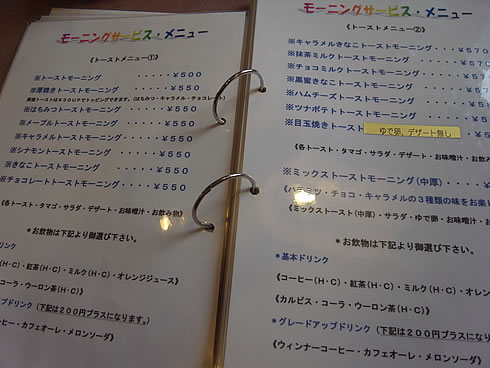 モーニングサービス・メニュー
《トーストメニュー①》
※トーストモーニング ・・・・・¥500
※厚焼きトーストモーニング ・・・・・¥550
※はちみつトーストモーニング ・・・・¥550
※メープルトーストモーニング ・・・・¥550
※キャラメルトーストモーニング ・・・¥550
※シナモントーストモーニング ・・・・¥550
※きなこトーストモーニング ・・・・・¥550
※チョコレートトーストモーニング ・・・¥550
《各トースト・タマゴ・サラダ・デザート・お味噌汁・お飲み物》
*お飲物は下記より御選び下さい。
リンク
(H・C)・紅茶(H・C)・ミルク(H・C)・オレンジジュース》
コーラ・ウーロン茶(H・C)》
プドリンク (下記は200円プラスになります。)
ーヒー・カフェオーレ・メロンソーダ》
モーニングサービス・メニュー
《トーストメニュー②》
※キャラメルきなこトーストモーニング・・・¥570
※抹茶ミルクトーストモーニング・・・¥57
※チョコミルクトーストモーニング・・・¥5
※黒蜜きなこトーストモーニング・・・
※ハムチーズトーストモーニング・・・
※ツナポテトトーストモーニング・・・
※目玉焼きトースト
ゆで卵、デザート無し
《各トースト・タマゴ・サラダ・デザート・お味噌汁・お
※ミックストーストモーニング(中厚)・・・・¥
《ハチミツ・チョコ・キャラメルの3種類の味をお楽し
《ミックストースト(中厚)・サラダ・ゆで卵・お味噌汁・お
*お飲物は下記より御選び下さい。
*基本ドリンク
《コーヒー(H・C)・紅茶(H・C)・ミルク(H・C)・オレンジ
《カルピス・コーラ・ウーロン茶(H・C)》
*グレードアップドリンク (下記は200円プラスになり
《ウィンナーコーヒー・カフェオーレ・メロンソーダ》